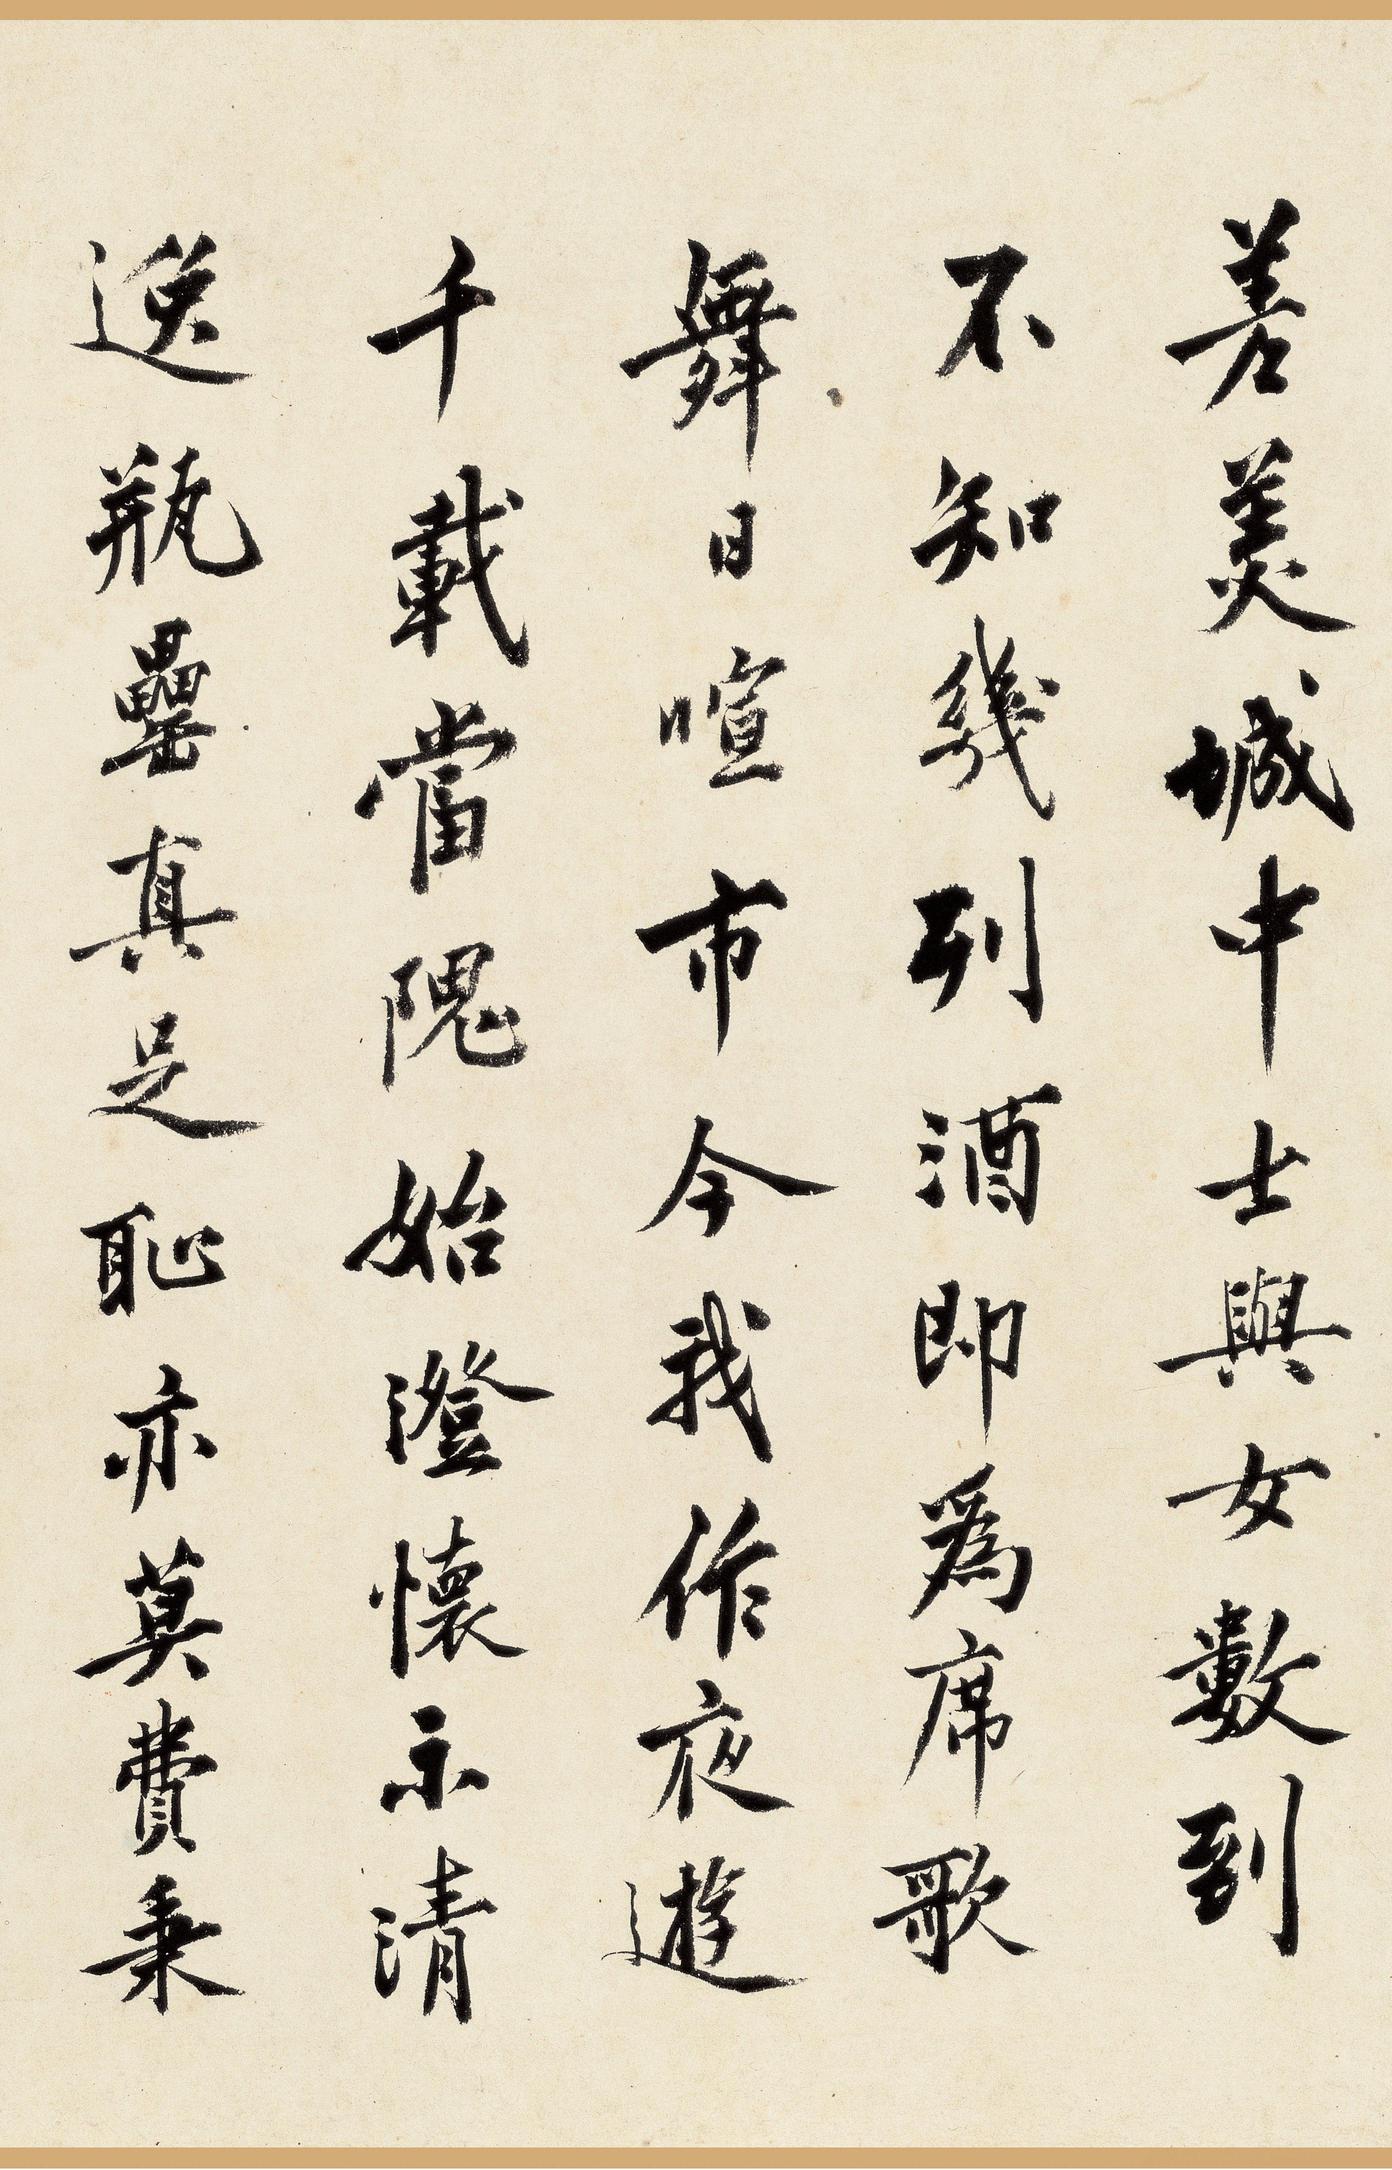 差羙城中士與女數到
不知幾列酒即為席歌
舞日喧市今我作夜遊
千載當隗始澄懷示清
逸瓶罍真足恥亦莫費秉